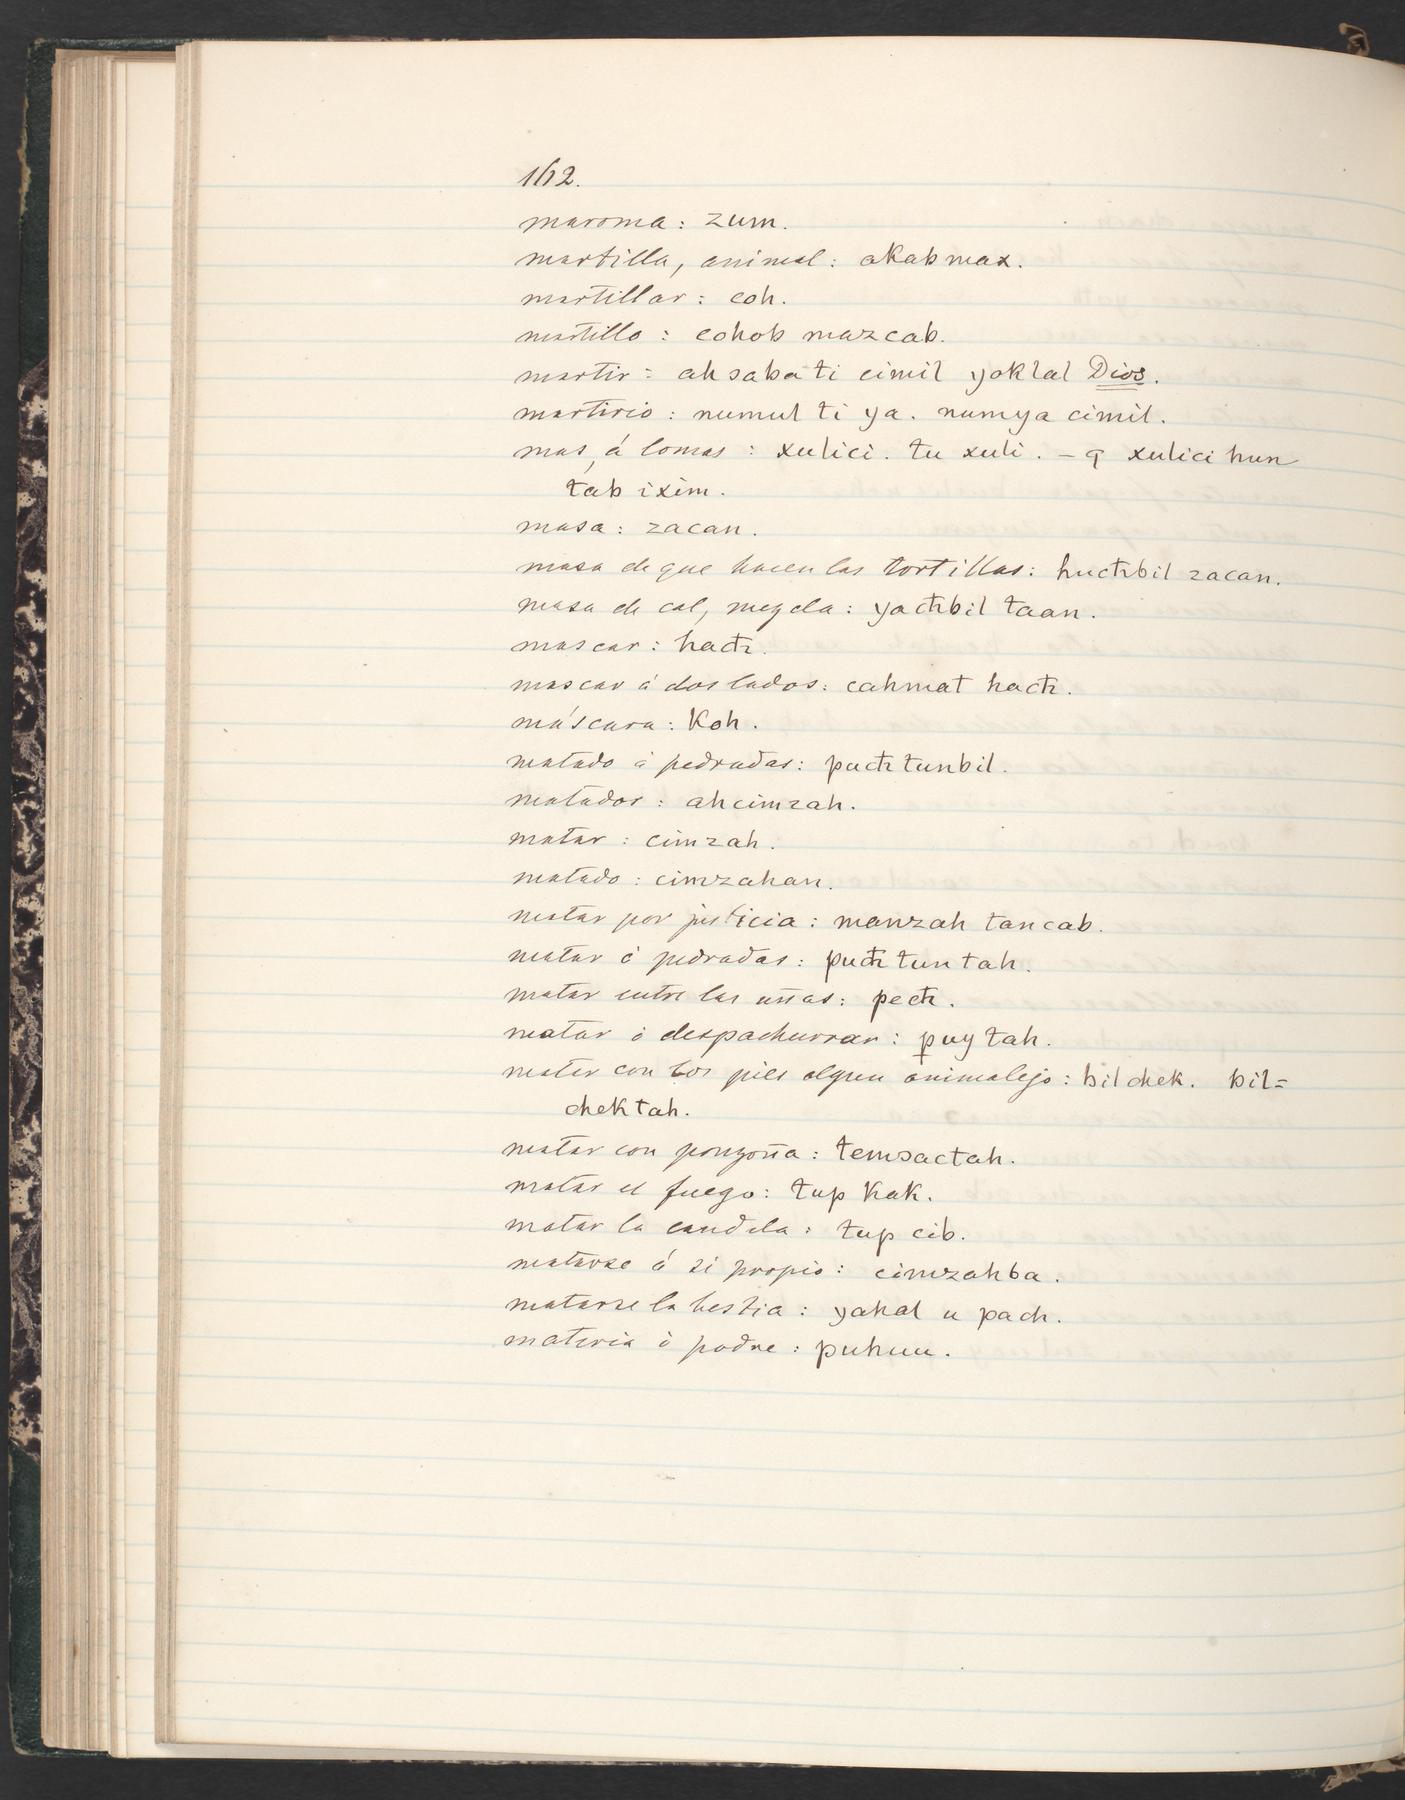 162.
maroma: zum.
martilla, animal: akabmax.
martillar: coh.
martillo: cohob mazcab.
martir: ah sabati cimil yoklal Dios.
martirio: numul ti ya. numya cimil.
mas, á lomas: xulici. tu xuli. – q xulici hun
tab ixim.
masa: zacan.
masa de que hacen las tortillas: huchbil zacan.
masa de cal, mezcla: yachbil taan.
mascar: hach.
mascar á dos lados: cahmat hach.
máscara: Koh.
matado á pedradas: puch tunbil.
matador: ahcimzah.
matar: cimzah.
matado: cimzahan.
matar por justicia: manzah tancab.
matar á pedradas: puch tun tah.
matar entre las uñas: pech.
matar ó despachurrar: puy tah.
matar con los pies algun animalejo: bilchek. bil=
chektah.
matar con ponzoña: temsactah.
matar el fuego: tup Kak.
matar la candela: tup cib.
matarse á si propio: cimzahba.
matarse la bestia: yahal u pach.
materia ó podre: puhuu.